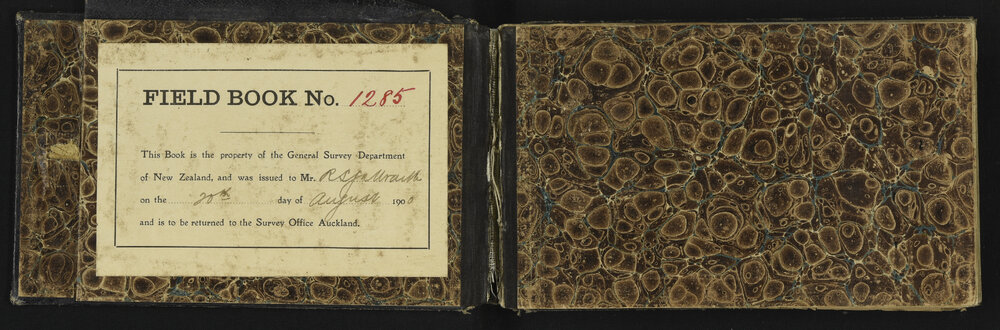 FIELD BOOK No. 1285
This Book is the property of the General Survey Department
of New Zealand, and was issued to Mr. R S Galbraith
on the 20th day of August 1900
and is to be returned to the Survey Office Auckland.